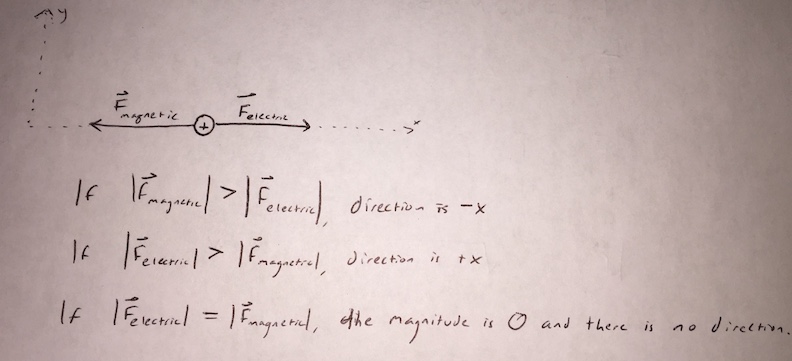 y
F⃗magnetic + F⃗electric x
If |F⃗magnetic| > |F⃗electric|, direction is -x
If |F⃗electric| > |F⃗magnetic|, direction is +x
If |F⃗electric| = |F⃗magnetic|, the magnitude is 0 and there is no direction.